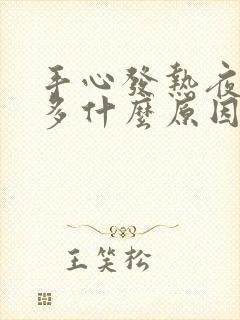 手心發熱夜
多什麼原因
王笑松